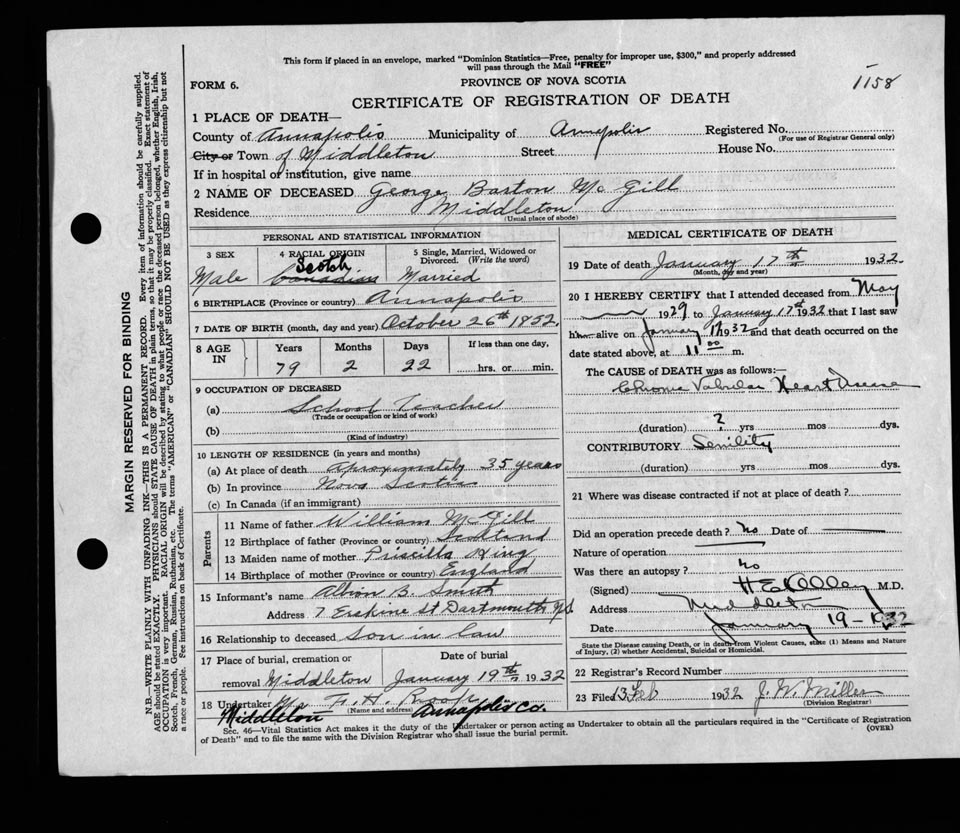 This form if placed in an envelope, marked "Dominion Statistics—Free, penalty for improper use, $300," and properly addressed
will pass through the Mail "FREE"
FORM 6.
PROVINCE OF NOVA SCOTIA
1158
CERTIFICATE OF REGISTRATION OF DEATH
1 PLACE OF DEATH—
County of Annapolis Municipality of Annapolis Registered No.
(For use of Registrar General only)
City or Town of Middleton Street House No.
If in hospital or institution, give name
2 NAME OF DECEASED George Barton McGill
Residence Middleton
(Usual place of abode)
PERSONAL AND STATISTICAL INFORMATION
3 SEX 4 RACIAL ORIGIN 5 Single, Married, Widowed or
Divorced. (Write the word)
Scotch
Male Canadian Married
6 BIRTHPLACE (Province or country) Annapolis
7 DATE OF BIRTH (month, day and year) October 26th 1852.
8 AGE IN Years Months Days If less than one day,
79 2 22 hrs. or min.
9 OCCUPATION OF DECEASED
(a) School Teacher
(Trade or occupation or kind of work)
(b)
(Kind of industry)
10 LENGTH OF RESIDENCE (in years and months)
(a) At place of death Aproxymately 35 years
(b) In province Nova Scotia
(c) In Canada (if an immigrant)
Parents
11 Name of father William McGill
12 Birthplace of father (Province or country) Scotland
13 Maiden name of mother Priscilla King
14 Birthplace of mother (Province or country) England
15 Informant's name Albion B. Smith
Address 7 Erskine St Dartmouth NS
16 Relationship to deceased son in law
17 Place of burial, cremation or Date of burial
removal Middleton January 19th 1932
18 Undertaker F. H.
(Name and address)
Middleton Annapolis Co.
MEDICAL CERTIFICATE OF DEATH
19 Date of death January 17th 1932.
(Month, day and year)
20 I HEREBY CERTIFY that I attended deceased from May
1929 to January 17th 1932 that I last saw
him alive on January 17 1932 and that death occurred on the
date stated above, at 11 00 m.
The CAUSE of DEATH was as follows:—
Chronic Valvular Heart Disease
(duration) ? yrs mos dys.
CONTRIBUTORY Senility
(duration) yrs mos dys.
21 Where was disease contracted if not at place of death?
Did an operation precede death? No Date of
Nature of operation
Was there an autopsy? No
(Signed) H E Kelley M.D.
Address Middleton
Date January 19-1932
State the Disease causing Death, or in death from Violent Causes, state (1) Means and Nature
of Injury, (2) whether Accidental, Suicidal or Homicidal.
22 Registrar's Record Number
23 Filed 13 Feb 1932 J. W. Miller
(Division Registrar)
Sec. 46—Vital Statistics Act makes it the duty of the Undertaker or person acting as Undertaker to obtain all the particulars required in the "Certificate of Registration
of Death" and to file the same with the Division Registrar who shall issue the burial permit.
(OVER)
MARGIN RESERVED FOR BINDING
N.B.—WRITE PLAINLY WITH UNFADING INK—THIS IS A PERMANENT RECORD. Every item of information should be carefully supplied.
AGE should be stated EXACTLY. PHYSICIANS should STATE CAUSE OF DEATH in plain terms, so that it may be properly classified. Exact statement of
OCCUPATION is very important. RACIAL ORIGIN will be described by stating to what people or race the deceased person belonged, whether English, Irish,
Scotch, French, German, Russian, Ruthenian, etc. The terms "AMERICAN" or "CANADIAN" SHOULD NOT BE USED as they express citizenship but not
a race or people. See instructions on back of Certificate.